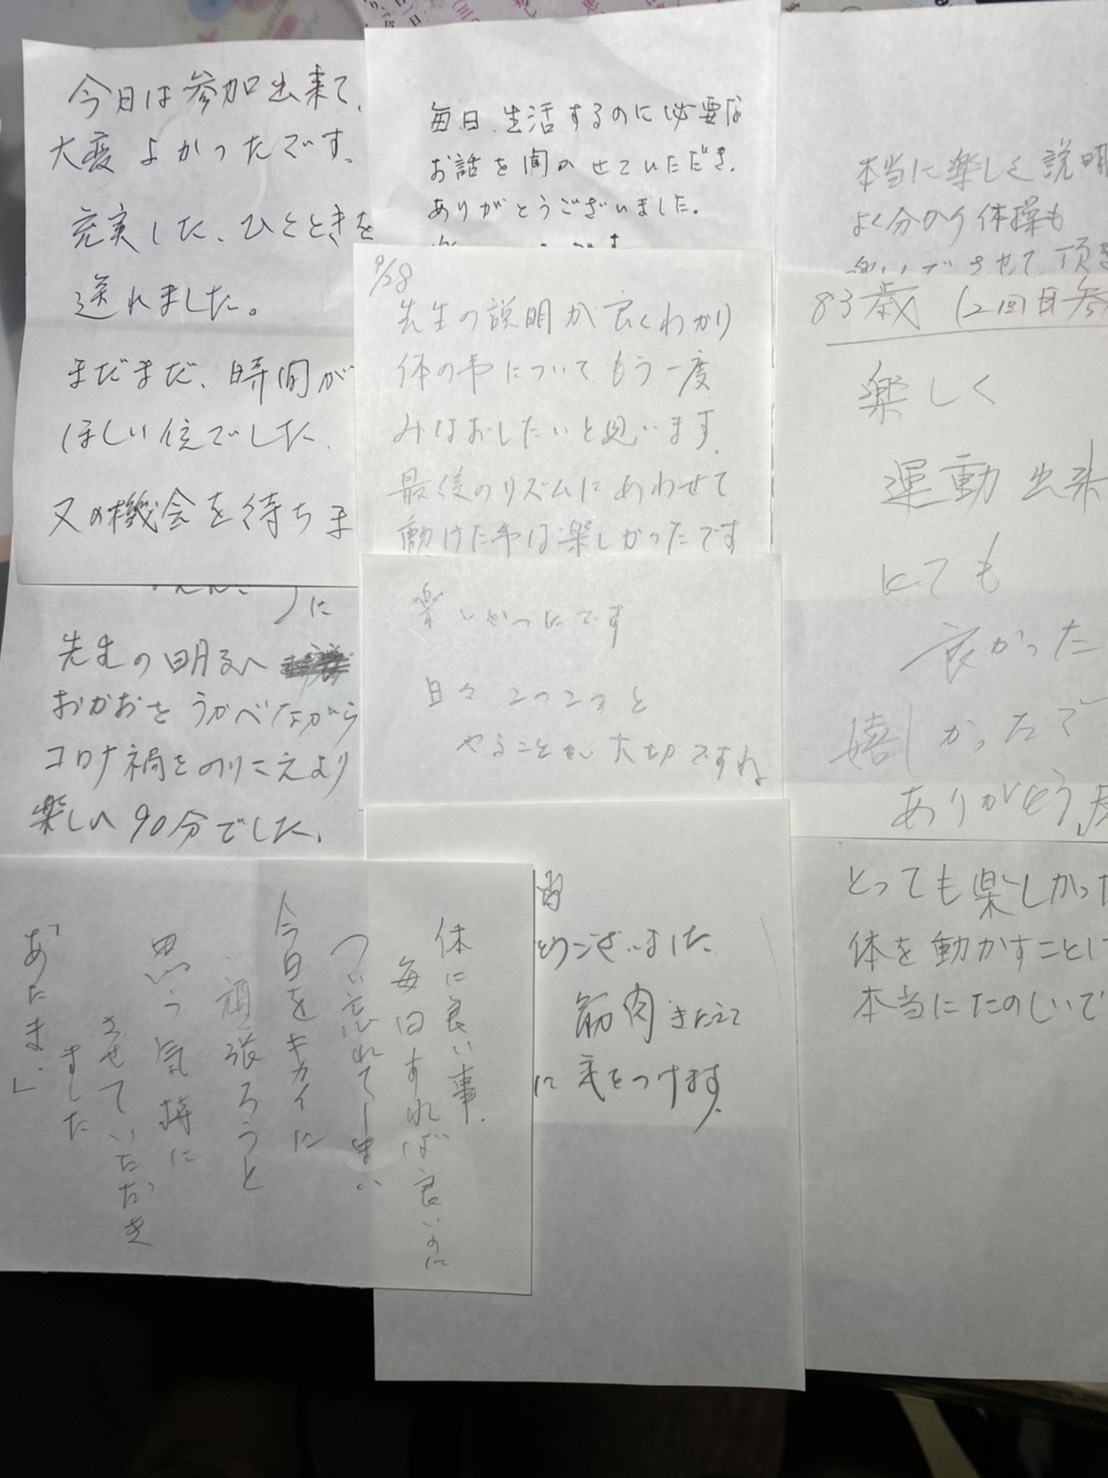 今日は参加出来て、
大変よかったです。
充実した、ひとときを
送れました。
まだまだ、時間が
ほしい位でした。
又の機会を待ちま
に
先生の明るい
おかおをうかべながら
コロナ禍をのりこえより
楽しい90分でした。
毎日、生活するのに必要な
お話を聞かせていただき、
ありがとうございました。
9/28
先生の説明が良くわかり
体の事について、もう一度
みなおしたいと思います。
最後のリズムにあわせて
動けた事は楽しかったです
楽しかったです
日々コツコツと
やることが大切ですね
本当に楽しく説明
よく分かり体操も
させて頂き
83歳 (2回目参
楽しく
運動出来
とても
良かった
嬉しかったで
ありがとう
とっても楽しかった
体を動かすことは
本当にたのしいで
とうございました
筋肉きたえて
に気をつけます。
体に良い事、
毎日すれば良いのに
つい忘れてしまい
今日をキカイに
頑張ろうと
思う気持に
させていただき
ました
「あたま」